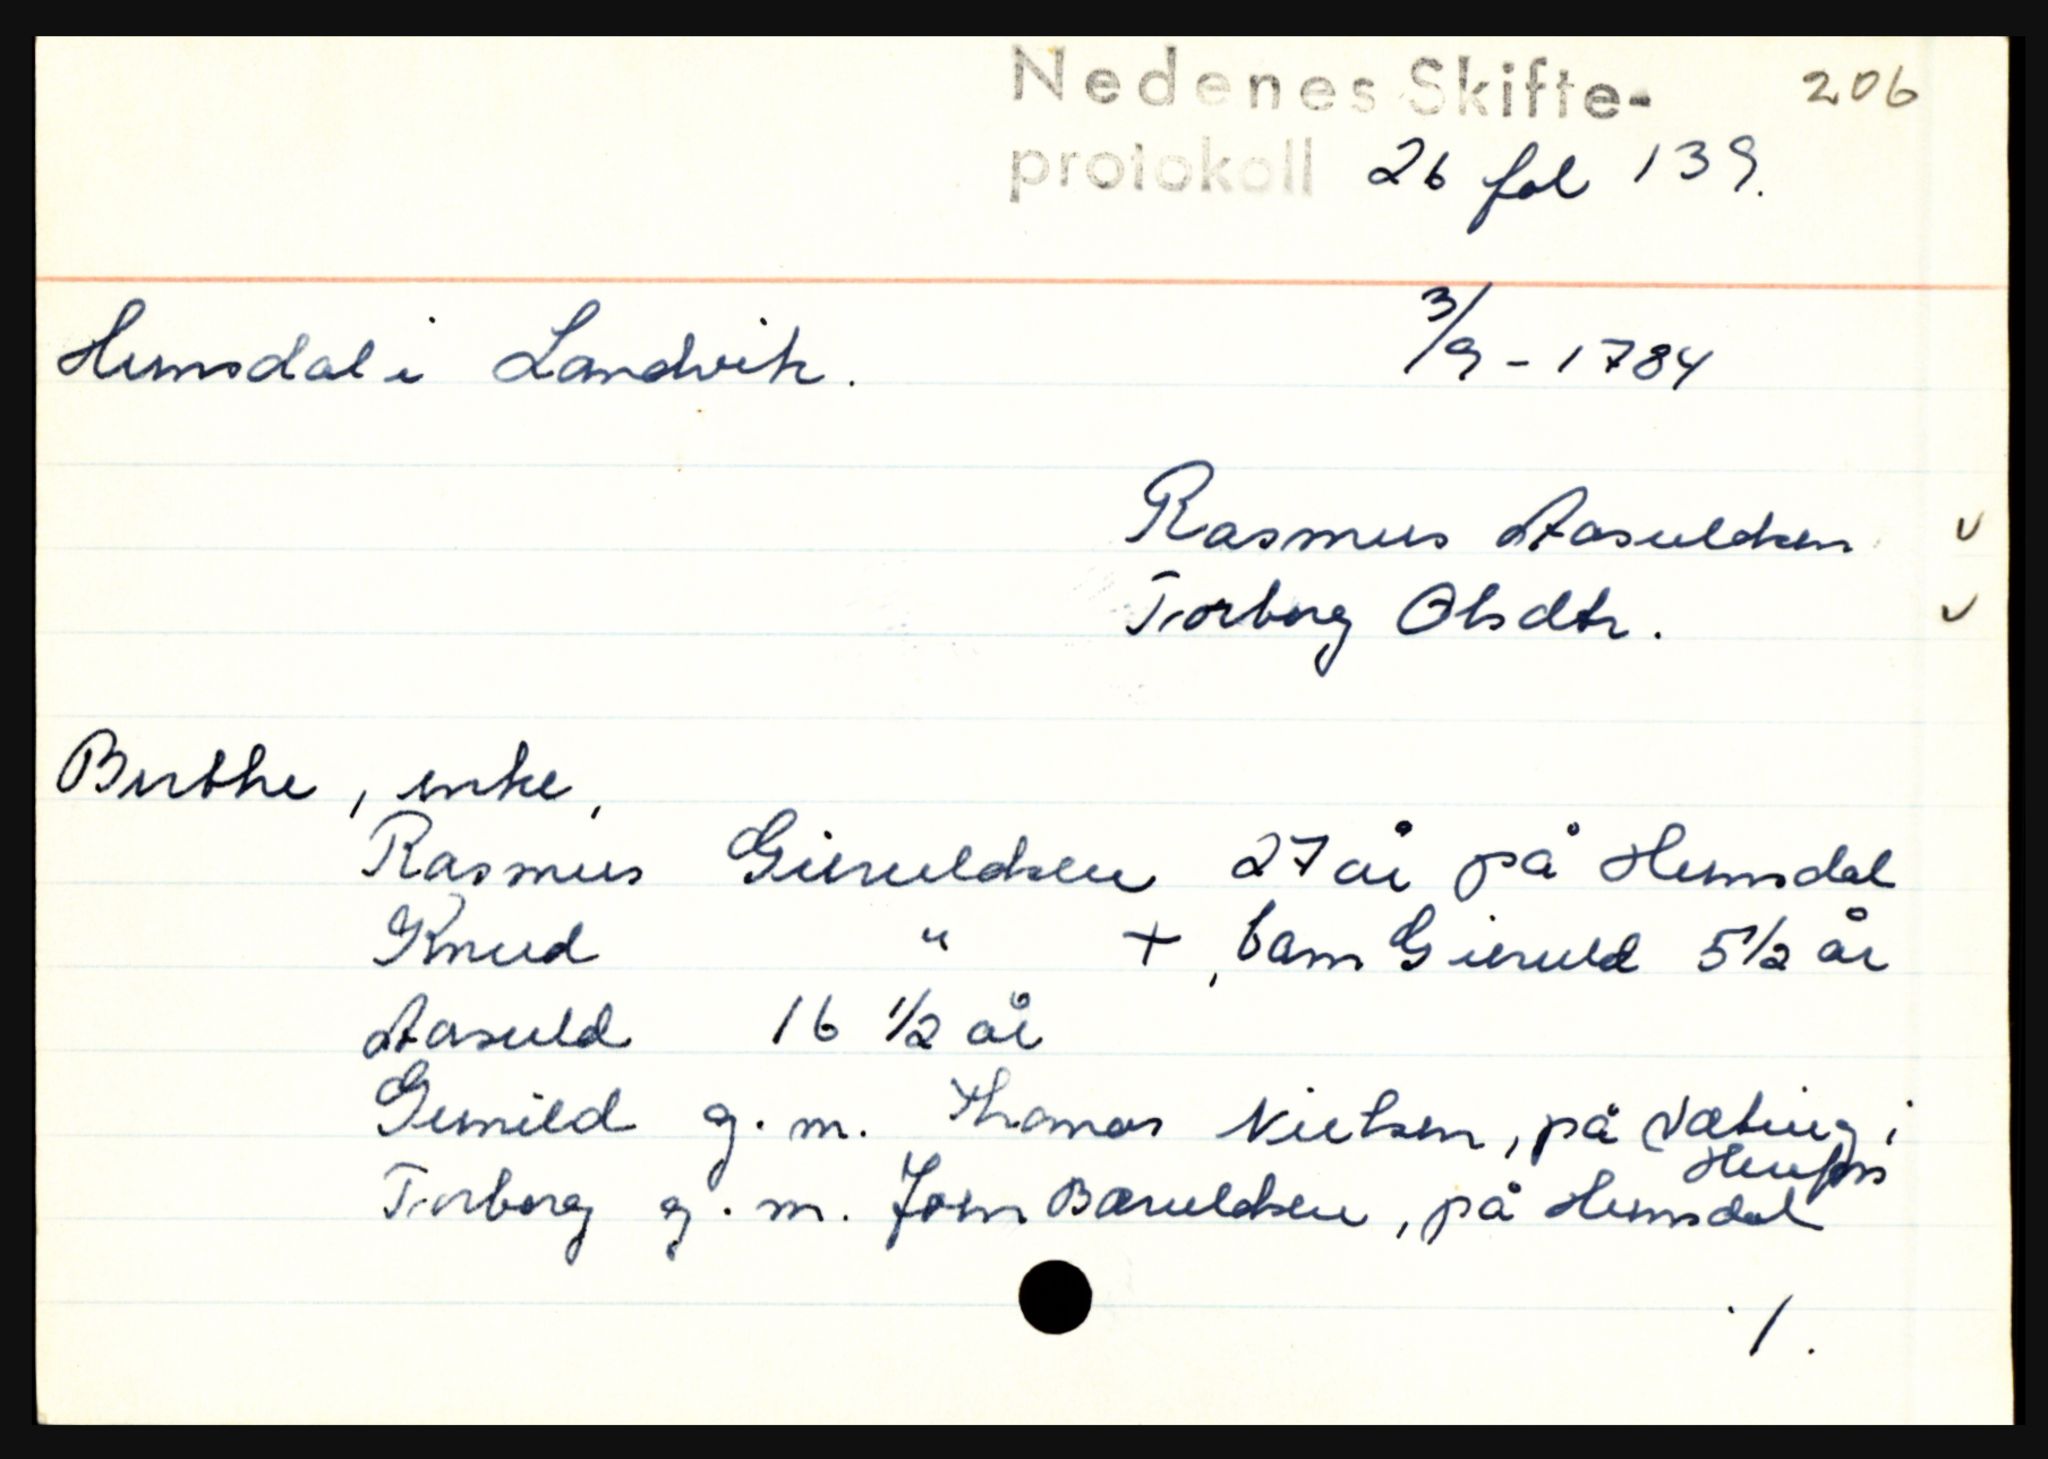 Nedenes Skifte- 206
protokoll 26 fol 139.
Humsdal i Landvik. 3/9 - 1784
Rasmus Aasuldsen v
Torborg Olsdtr. v
Birthe, enke,
Rasmus Gieruldsen 27 år på Humsdal
Knud " +, barn Gieruld 5 1/2 år
Aasuld 16 1/2 år
Gunild g. m. Thomas Nielsen, på i
Torborg g. m. Jørn Bæruldsen, på Humsdal
./.